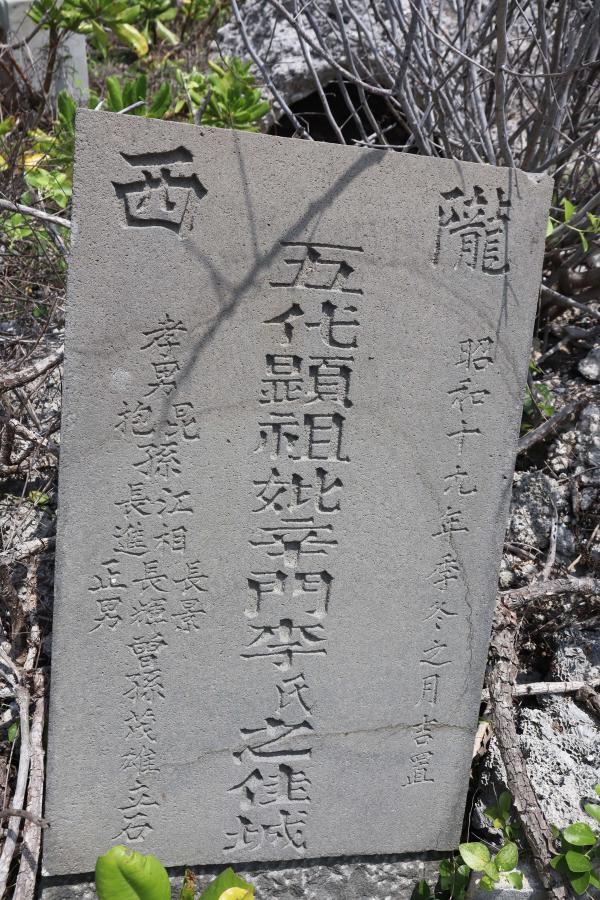 隴西
昭和十九年季冬之月吉置
五代顕祖妣辛門李氏之佳城
孝男昆抱孫江相長進長景長輝正男曾孫茂雄立石